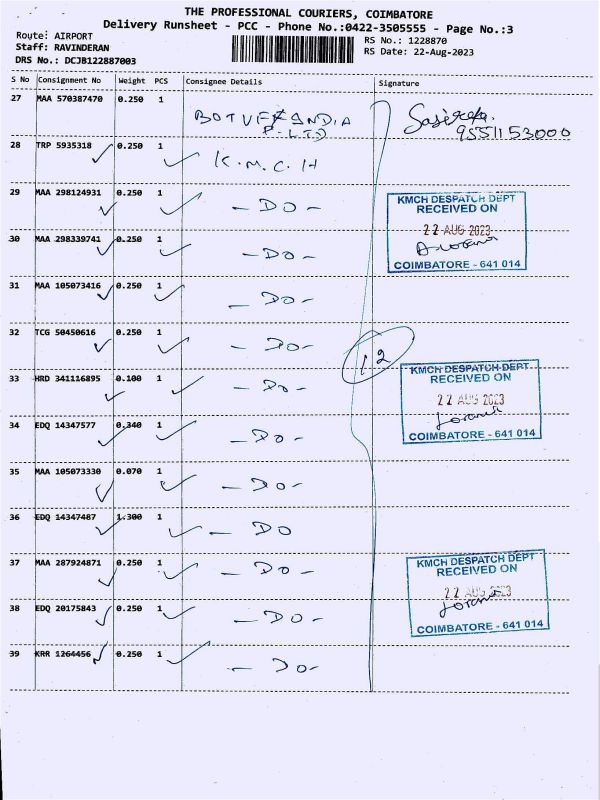 THE PROFESSIONAL COURIERS, COIMBATORE
Delivery Runsheet - PCC - Phone No.:0422-3505555 - Page No.:3
Route: AIRPORT
Staff: RAVINDERAN
DRS No.: DCJB122887003
RS No.: 1228870
RS Date: 22-Aug-2023
S No Consignment No Weight PCS Consignee Details Signature
27 MAA 570387470 0.250 1
INDIA P. LTD
9551153000
28 TRP 5935318 0.250 1 K.M.C.H
29 MAA 298124931 0.250 1 - DO -
KMCH DESPATCH DEPT
RECEIVED ON
22 AUG 2023
COIMBATORE - 641 014
30 MAA 298339741 0.250 1 - DO -
31 MAA 105073416 0.250 1 - DO -
32 TCG 50450616 0.250 1 - DO -
12
33 HRD 341116895 0.100 1 - DO -
KMCH DESPATCH DEPT
RECEIVED ON
22 AUG 2023
COIMBATORE - 641 014
34 EDQ 14347577 0.340 1 - DO -
35 MAA 105073330 0.070 1 - DO -
36 EDQ 14347487 1.300 1 - DO
37 MAA 287924871 0.250 1 - DO -
KMCH DESPATCH DEPT
RECEIVED ON
22 AUG 2023
COIMBATORE - 641 014
38 EDQ 20175843 0.250 1 - DO -
39 KRR 1264456 0.250 1 - DO -